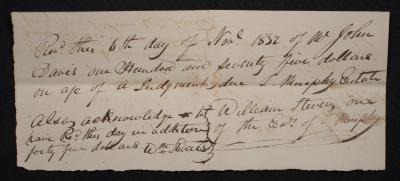 Recd this 6th day of Novr 1832 of Mr John
Davis one Hundred and seventy five dollars
on a/c of a Judgment due S. Murphy Estate
Also acknowledge to William Stewart one
have Recd this day in addition of the Exrs of S Murphy
forty five dollars Wm